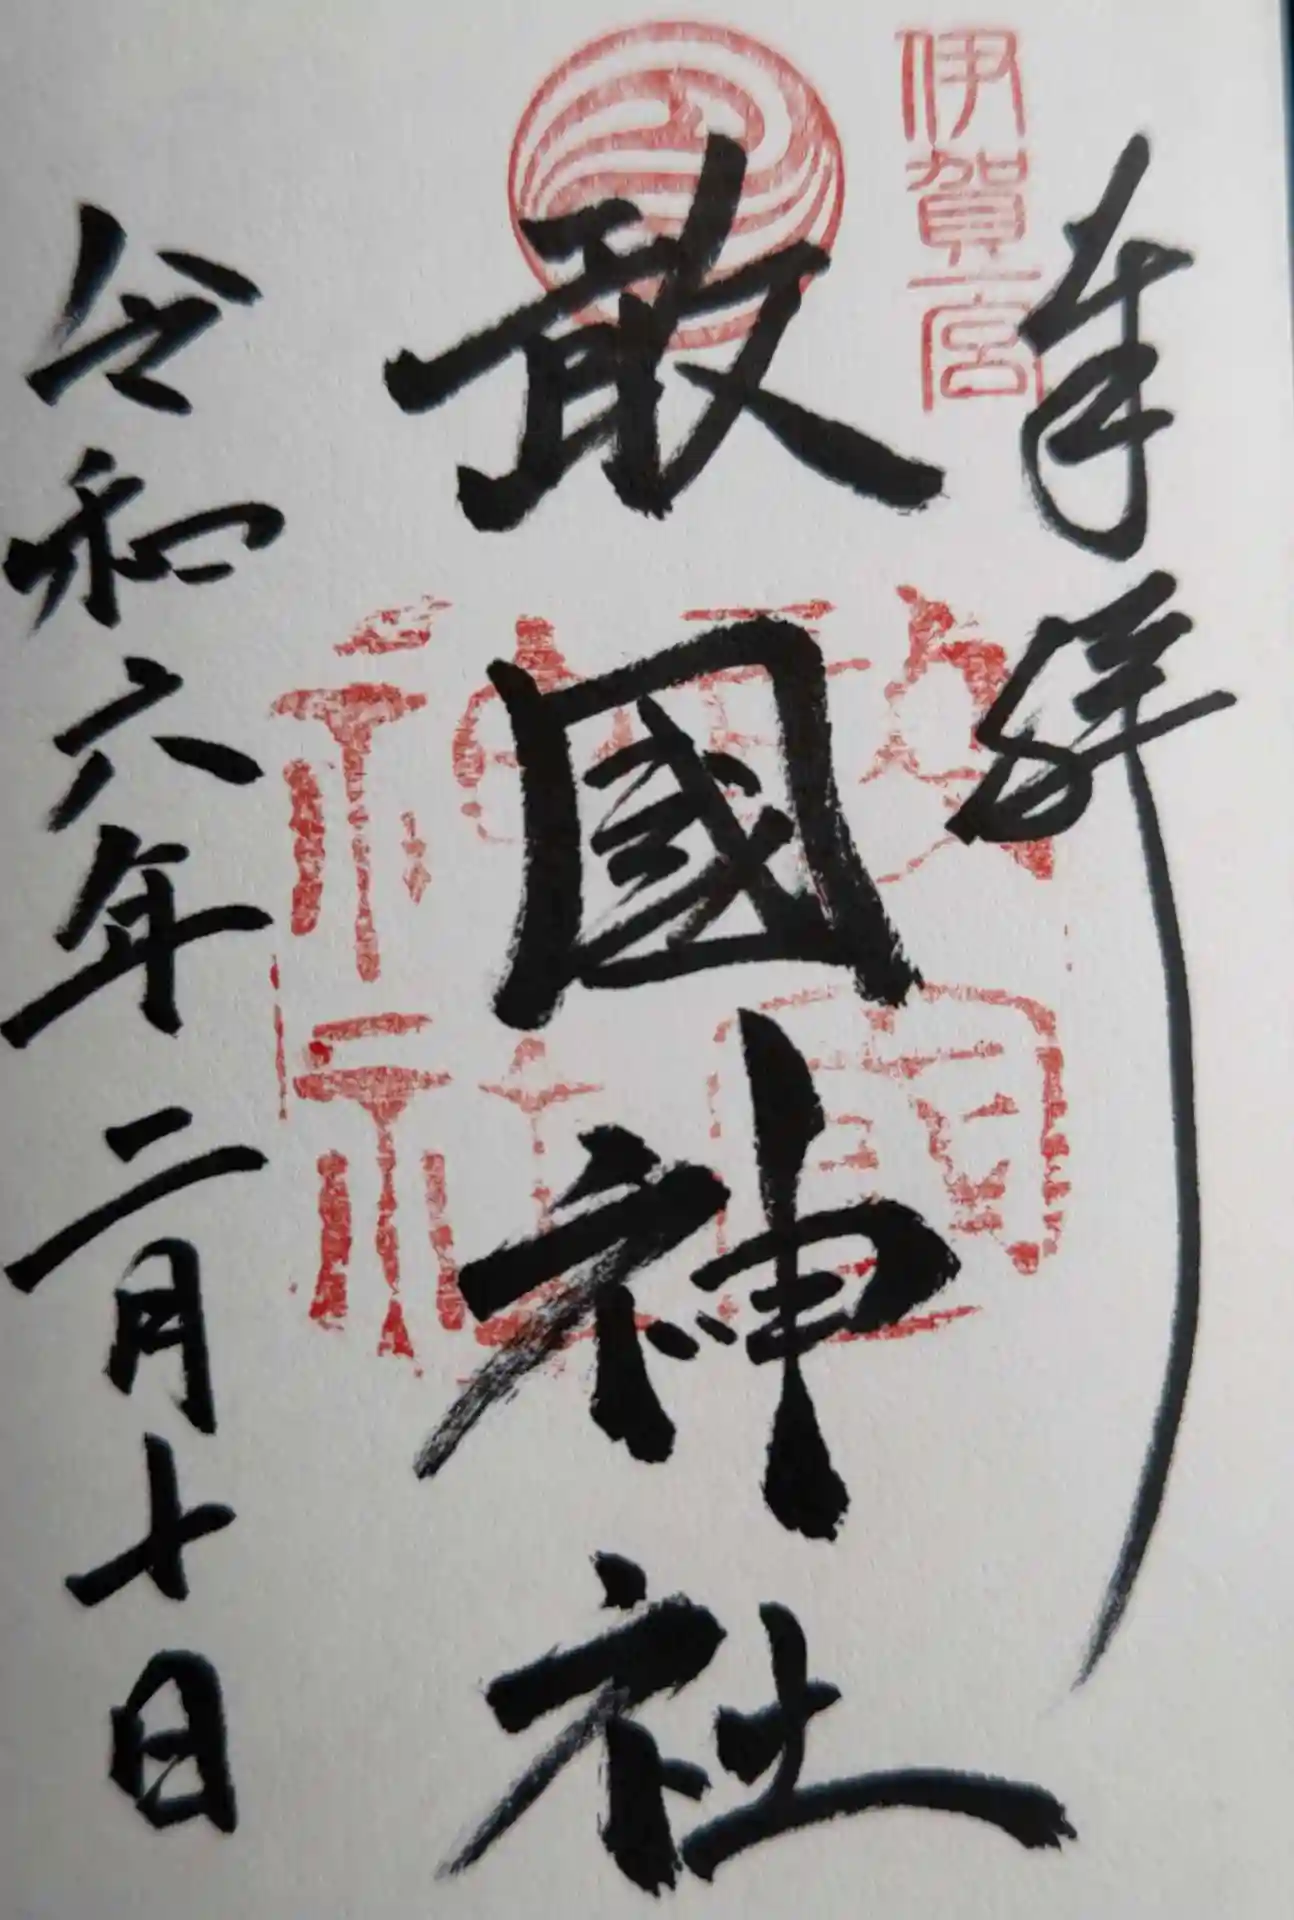 奉拝
伊賀一宮
敢國神社
敢国神社
令和六年二月十日